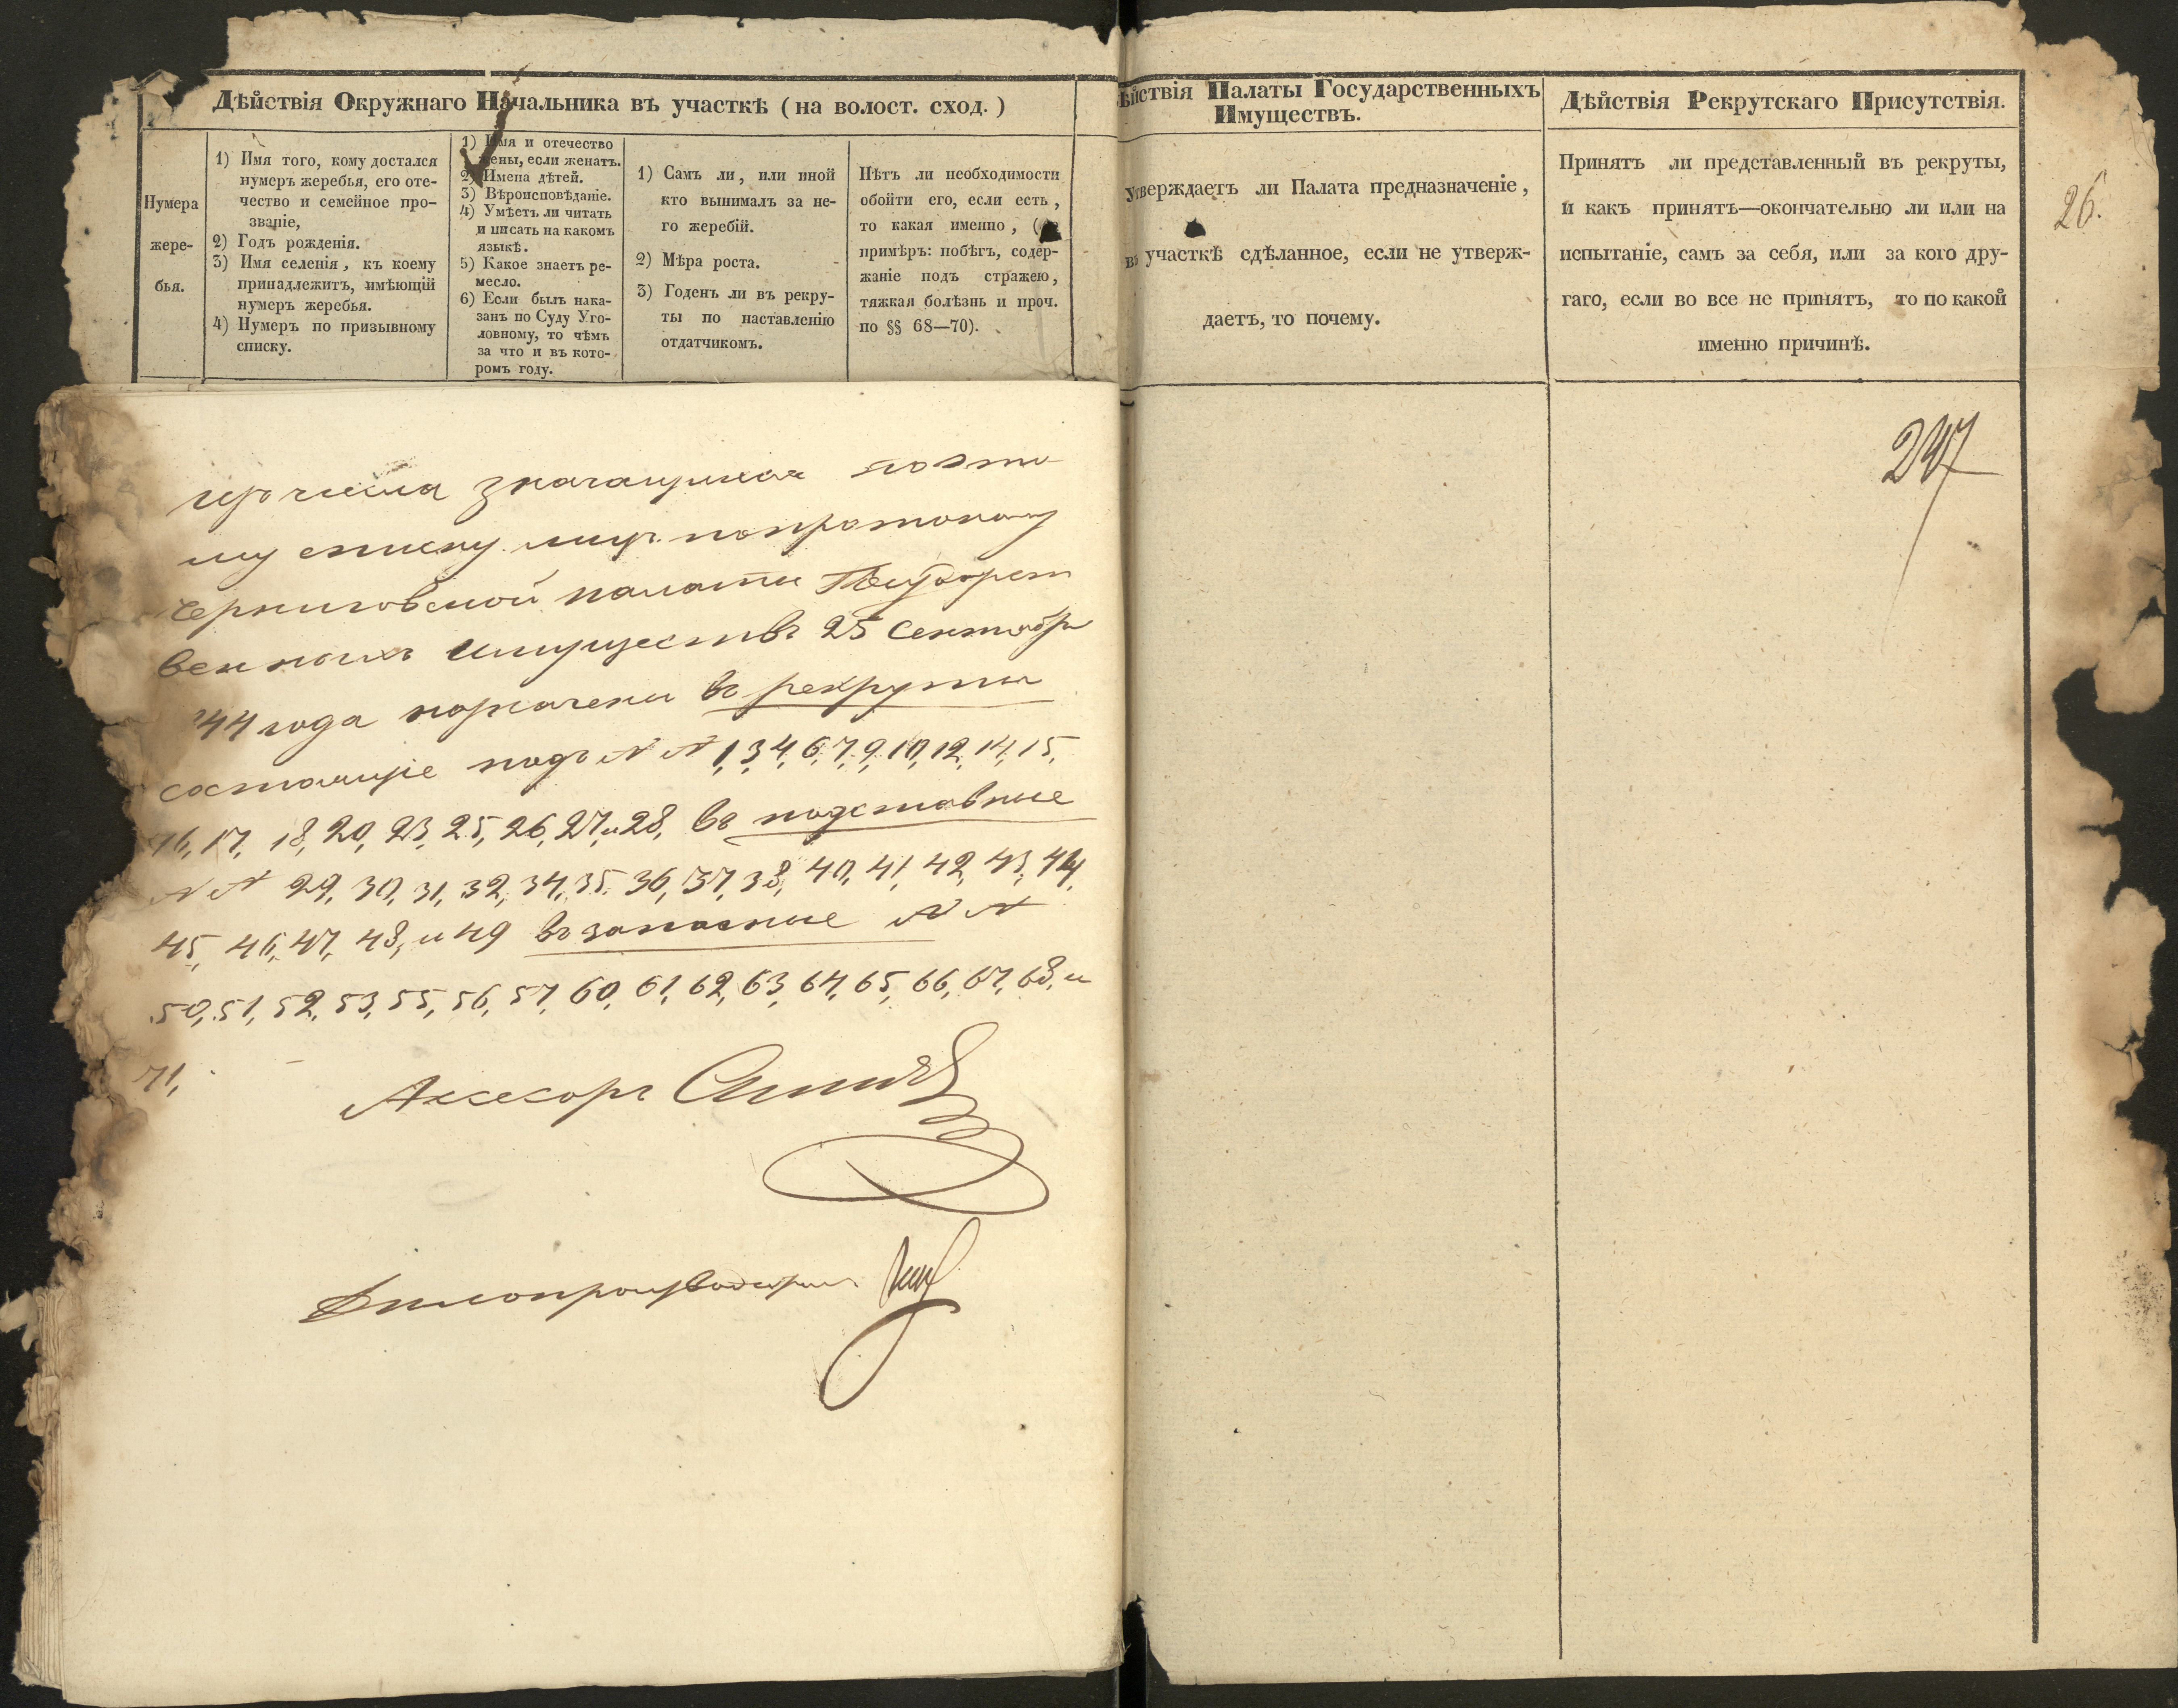 Дѣйствія Окружнаго Начальника въ участкѣ (на волост. сход.)
Нумера
жере-
бья.
1) Имя того, кому достался
нумеръ жеребья, его оте-
чество и семейное про-
званіе,
2) Годъ рожденія.
3) Имя селенія, къ коему
принадлежитъ, имѣющій
нумеръ жеребья.
4) Нумеръ по призывному
списку.
1) Имя и отечество
жены, если женатъ.
2) Имена дѣтей.
3) Вѣроисповѣданіе.
4) Умѣетъ ли читать
и писать на какомъ
языкѣ.
5) Какое знаетъ ре-
месло.
6) Если былъ нака-
занъ по Суду Уго-
ловному, то чѣмъ
за что и въ кото-
ромъ году.
1) Самъ ли, или иной
кто вынималъ за не-
го жеребій.
2) Мѣра роста.
3) Годенъ ли въ рекру-
ты по наставленію
отдатчикомъ.
Нѣтъ ли необходимости
обойти его, если есть,
то какая именно, (
примѣръ: побѣгъ, содер-
жаніе подъ стражею,
тяжкая болѣзнь и проч.
по §§ 68—70).
изъ числа значащихся поэто-
му списку лицъ попротоколу
Черниговской палаты Государст
венныхъ имуществъ 25 Сентября
44 года назначены въ рекруты
состоящіе подъ N N 1, 3, 4, 6, 7, 9, 10, 12, 14, 15,
16, 17, 18, 20, 23, 25, 26, 27, и 28, въ подставные
N N 29, 30, 31, 32, 34, 35, 36, 37, 38, 40, 41, 42, 43, 44,
45, 46, 47, 48, и 49 въ запасные N N
50, 51, 52, 53, 55, 56, 57, 60, 61, 62, 63, 64, 65, 66, 67, 68, и
71,
Ассесоръ
Дѣлопроизводитель
ѣйствія Палаты Государственныхъ
Имуществъ.
Утверждаетъ ли Палата предназначеніе,
въ участкѣ сдѣланное, если не утверж-
даетъ, то почему.
Дѣйствія Рекрутскаго Присутствія.
Принятъ ли представленный въ рекруты,
и какъ принятъ—окончательно ли или на
испытаніе, самъ за себя, или за кого дру-
гаго, если во все не принятъ, то по какой
именно причинѣ.
26.
247